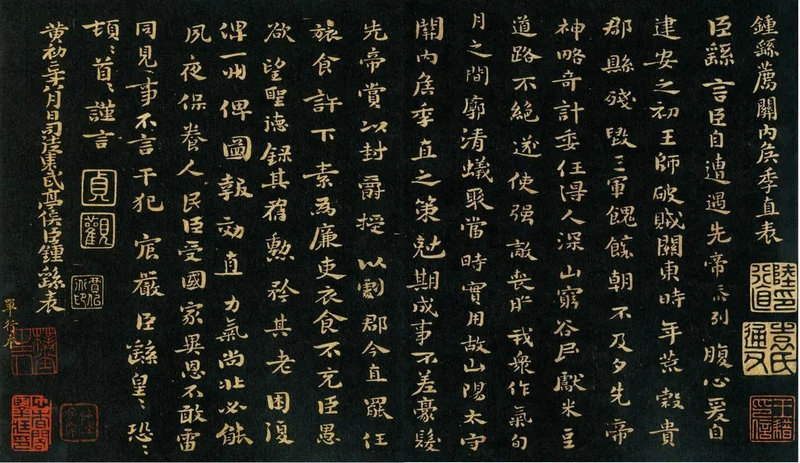 鍾繇薦關內侯季直表
臣繇言臣自遭遇先帝忝列腹心爰自
建安之初王師破賊關東時年荒穀貴
郡縣殘毀三軍餽饟朝不及夕先帝
神略奇計委任得人深山窮谷民獻米豆
道路不絕遂使强敵喪膽我眾作氣旬
月之間廓清蟻聚當時實用故山陽太守
關內侯季直之策尅期成事不差豪髮
先帝賞以封爵授以劇郡今直罷任
旅食許下素為廉吏衣食不充臣愚
欲望聖德錄其舊勳矜其老困復
俾一州俾圖報効直力氣尚壯必能
夙夜保養人民臣受國家異恩不敢雷
同見事不言干犯宸嚴臣繇皇〻恐〻
頓〻首〻謹言
黃初二年八月日司徒東武亭侯臣鍾繇表
貞觀
陸行直印
袁氏通父